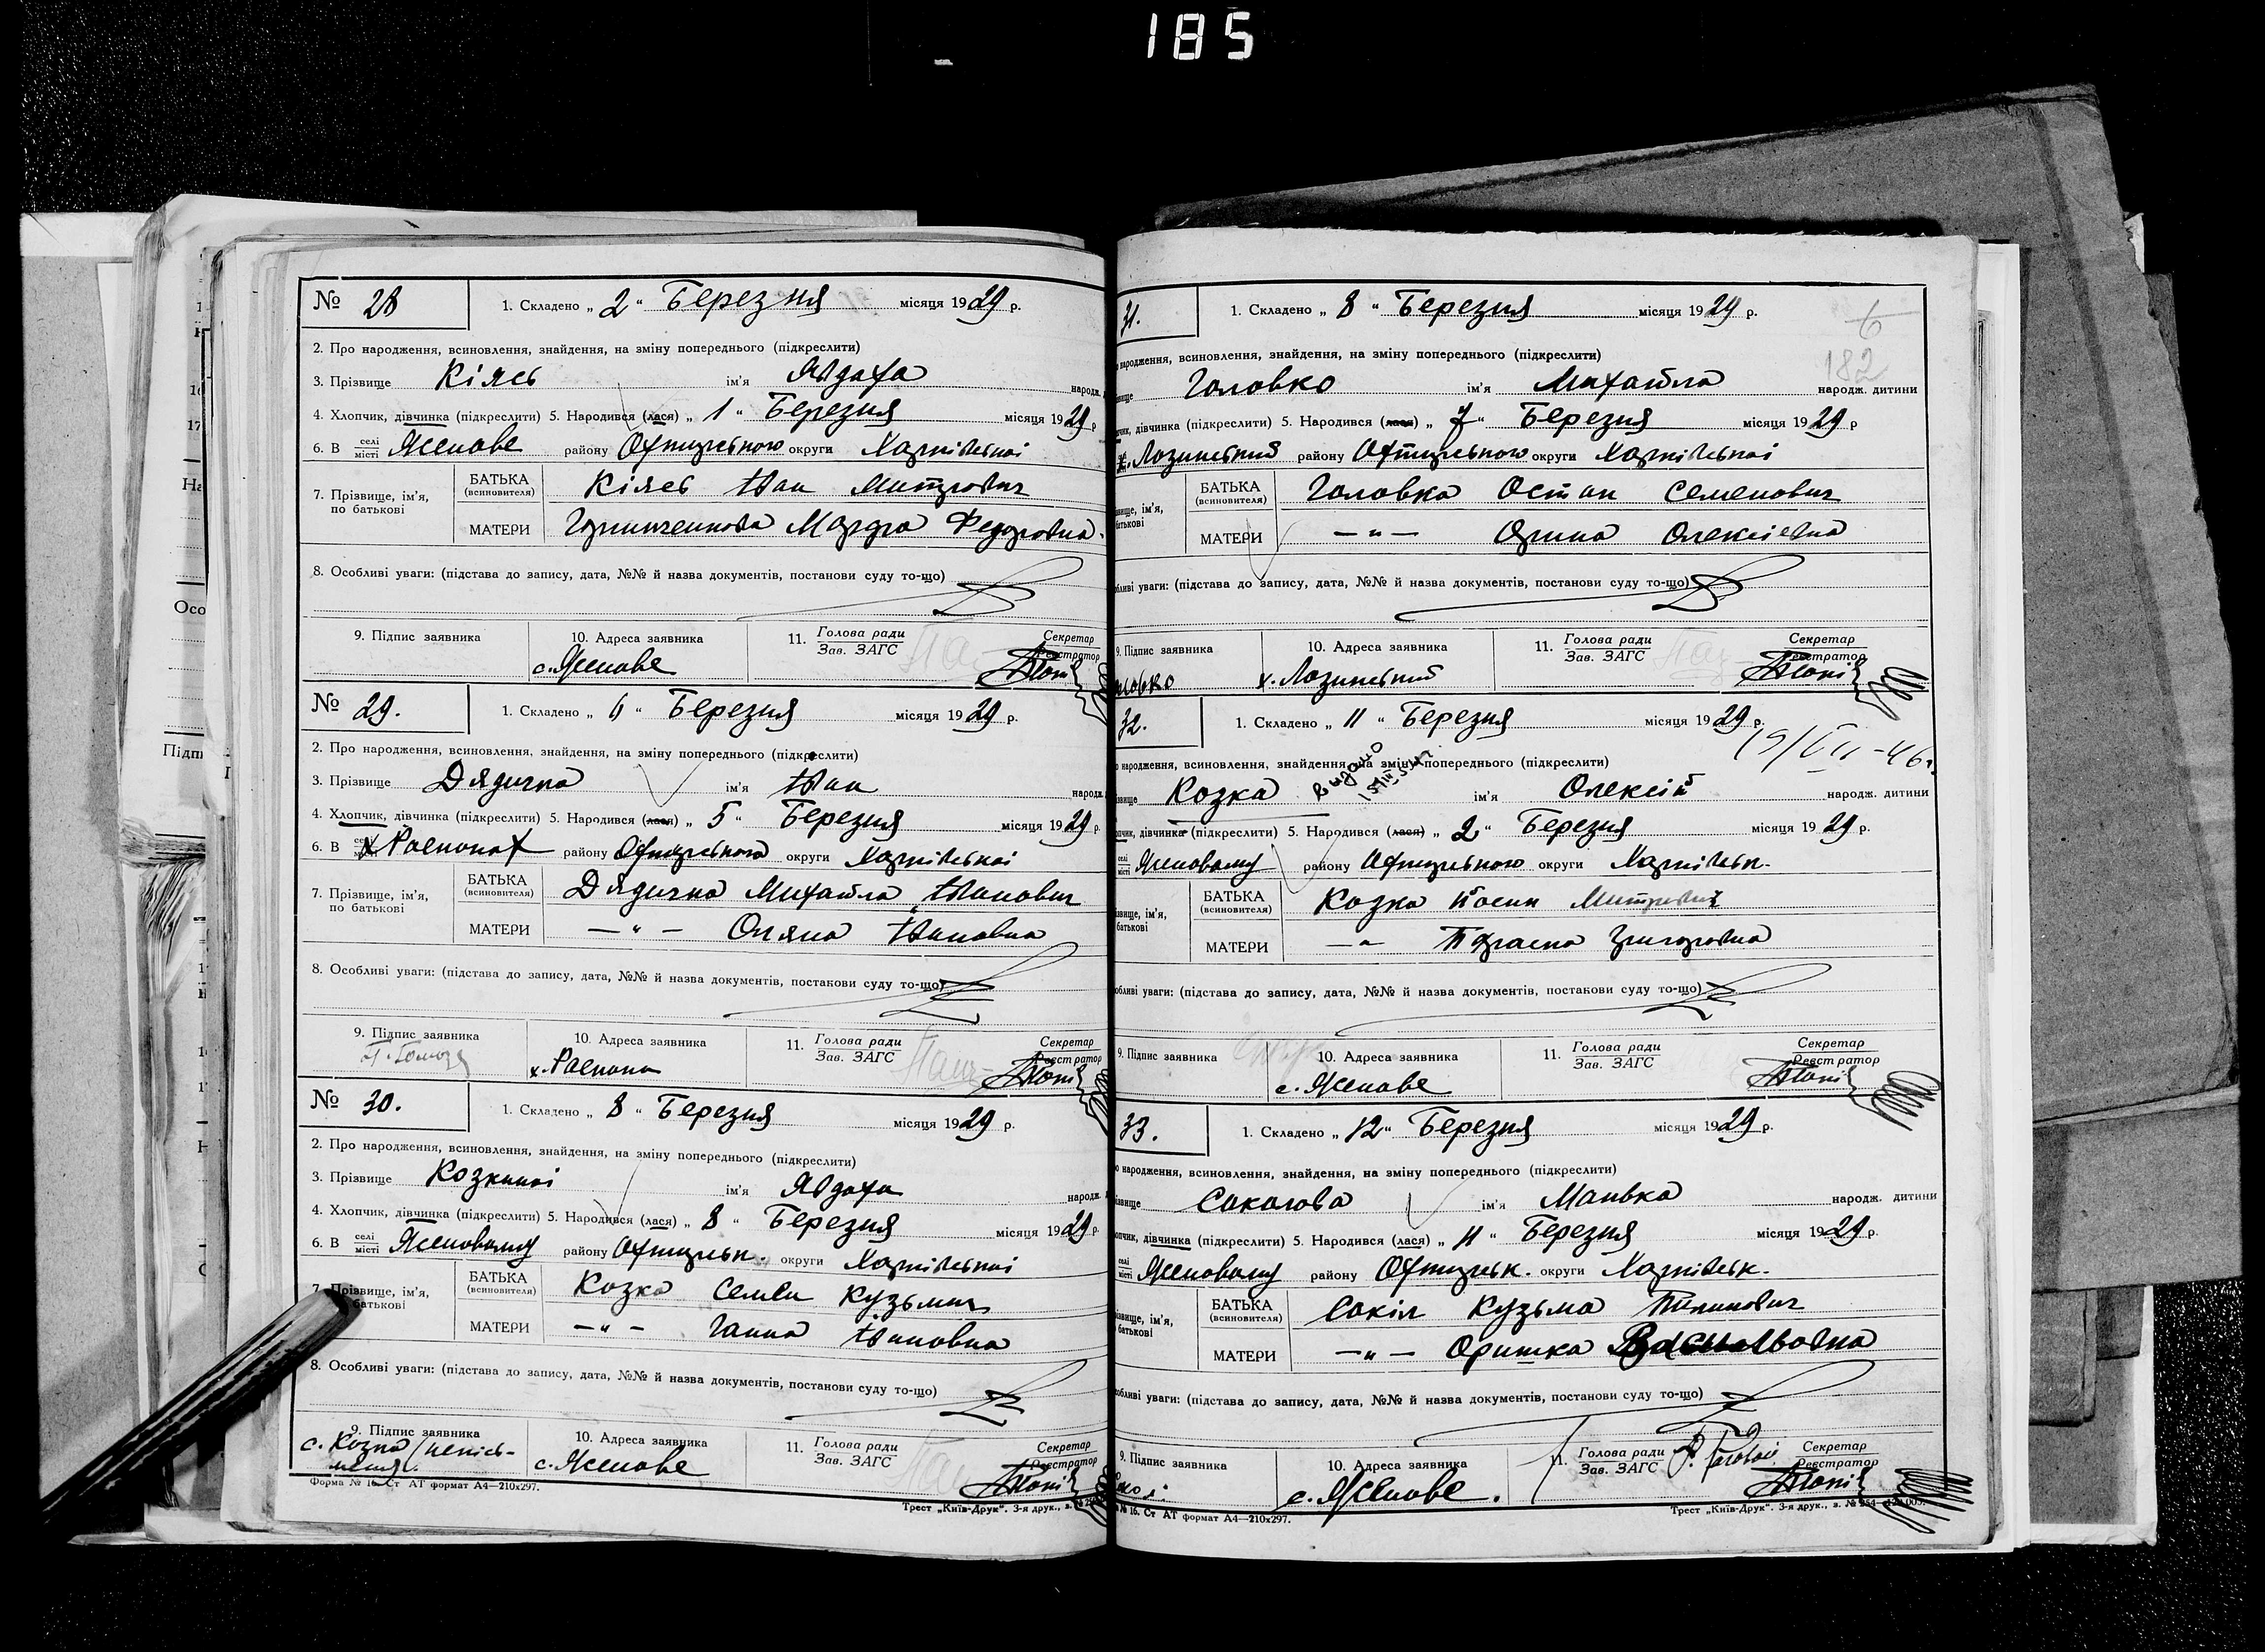 185
№ 28
1. Складено „ 2 “ Березня місяця 1929 р.
2. Про народження, всиновлення, знайдення, на зміну попереднього (підкреслити)
3. Прізвище Кіяев ім'я Явдоха народж.
4. Хлопчик, дівчинка (підкреслити) 5. Народився (лася) „ 1 “ Березня місяця 1929 р
6. В селі місті Ясенове району Охтирського округи Харківської
7. Прізвище, ім'я, по батькові
БАТЬКА (всиновителя) Кіяев Іван Митрович
МАТЕРИ Марфа Федоровна
8. Особливі уваги: (підстава до запису, дата, №№ й назва документів, постанови суду то-що)
9. Підпис заявника 10. Адреса заявника 11. Голова ради Зав. ЗАГС Секретар Реєстратор
с. Ясенове
№ 29.
1. Складено „ 6 “ Березня місяця 1929 р.
2. Про народження, всиновлення, знайдення, на зміну попереднього (підкреслити)
3. Прізвище Дядичка ім'я Іван народж.
4. Хлопчик, дівчинка (підкреслити) 5. Народився (лася) „ 5 “ Березня місяця 1929 р.
6. В району Охтирського округи Харківської
7. Прізвище, ім'я, по батькові
БАТЬКА (всиновителя) Дядичка Михайла Іванович
МАТЕРИ — " — Оляна Івановна
8. Особливі уваги: (підстава до запису, дата, №№ й назва документів, постанови суду то-що)
9. Підпис заявника 10. Адреса заявника 11. Голова ради Зав. ЗАГС Секретар Реєстратор
№ 30.
1. Складено „ 8 “ Березня місяця 1929 р.
2. Про народження, всиновлення, знайдення, на зміну попереднього (підкреслити)
3. Прізвище ім'я Явдоха народж.
4. Хлопчик, дівчинка (підкреслити) 5. Народився (лася) „ 8 “ Березня місяця 1929 р
6. В селі місті Ясеновому району Охтирськ. округи Харківської
7. Прізвище, ім'я, по батькові
БАТЬКА (всиновителя) Козка Семен Кузьмич
МАТЕРИ — " — Ганна Івановна
8. Особливі уваги: (підстава до запису, дата, №№ й назва документів, постанови суду то-що)
9. Підпис заявника 10. Адреса заявника 11. Голова ради Зав. ЗАГС Секретар Реєстратор
с. Козка с. Ясенове
Форма № 16. Ст АТ формат А4—210х297.
Трест „Київ-Друк“. 3-я друк., з.
31.
1. Складено „ 8 “ Березня місяця 1929 р.
6
182
народження, всиновлення, знайдення, на зміну попереднього (підкреслити)
Головко ім'я Михайла народж. дитини
дівчинка (підкреслити) 5. Народився (лася) „ 7 “ Березня місяця 1929 р
х. Лозинський району Охтирського округи Харківської
БАТЬКА (всиновителя) Головка Остап Семенович
МАТЕРИ — " — Орина Олексіевна
уваги: (підстава до запису, дата, №№ й назва документів, постанови суду то-що)
9. Підпис заявника 10. Адреса заявника 11. Голова ради Зав. ЗАГС Секретар Реєстратор
х. Лозинський
32.
1. Складено „ 11 “ Березня місяця 1929 р.
народження, всиновлення, знайдення, на зміну попереднього (підкреслити)
Козка ім'я Олексій народж. дитини
дівчинка (підкреслити) 5. Народився (лася) „ 2 “ Березня місяця 1929 р.
селі місті Ясеновому району Охтирського округи Харківськ.
БАТЬКА (всиновителя) Козка Йосип Митрович
МАТЕРИ — " Параска Григоровна
уваги: (підстава до запису, дата, №№ й назва документів, постанови суду то-що)
9. Підпис заявника 10. Адреса заявника 11. Голова ради Зав. ЗАГС Секретар Реєстратор
с. Ясенове
33.
1. Складено „ 12 “ Березня місяця 1929 р.
народження, всиновлення, знайдення, на зміну попереднього (підкреслити)
Соколова ім'я Манька народж. дитини
дівчинка (підкреслити) 5. Народився (лася) „ 11 “ Березня місяця 1929 р.
селі місті Ясеновому району Охтирськ. округи Харківськ.
БАТЬКА (всиновителя) Сокіл Кузьма Пилипович
МАТЕРИ — " — Оришка Васильовна
уваги: (підстава до запису, дата, №№ й назва документів, постанови суду то-що)
9. Підпис заявника 10. Адреса заявника 11. Голова ради Зав. ЗАГС Секретар Реєстратор
с. Ясенове.
№ 16. Ст АТ формат А4—210х297.
Трест „Київ-Друк“. 3-я друк., з. № 254